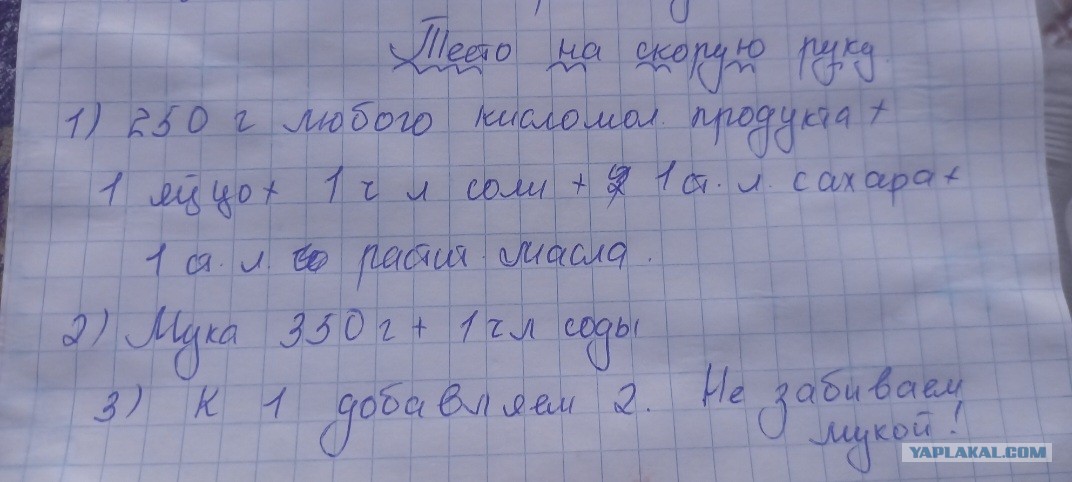 Тесто на скорую руку
1) 250 г любого кисломол. продукта +
1 яйцо + 1 ч л соли + 1 ст. л. сахара +
1 ст. л. растит. масла.
2) Мука 350 г + 1 ч л соды
3) К 1 добавляем 2. Не забиваем
мукой!
YAPLAKAL.COM